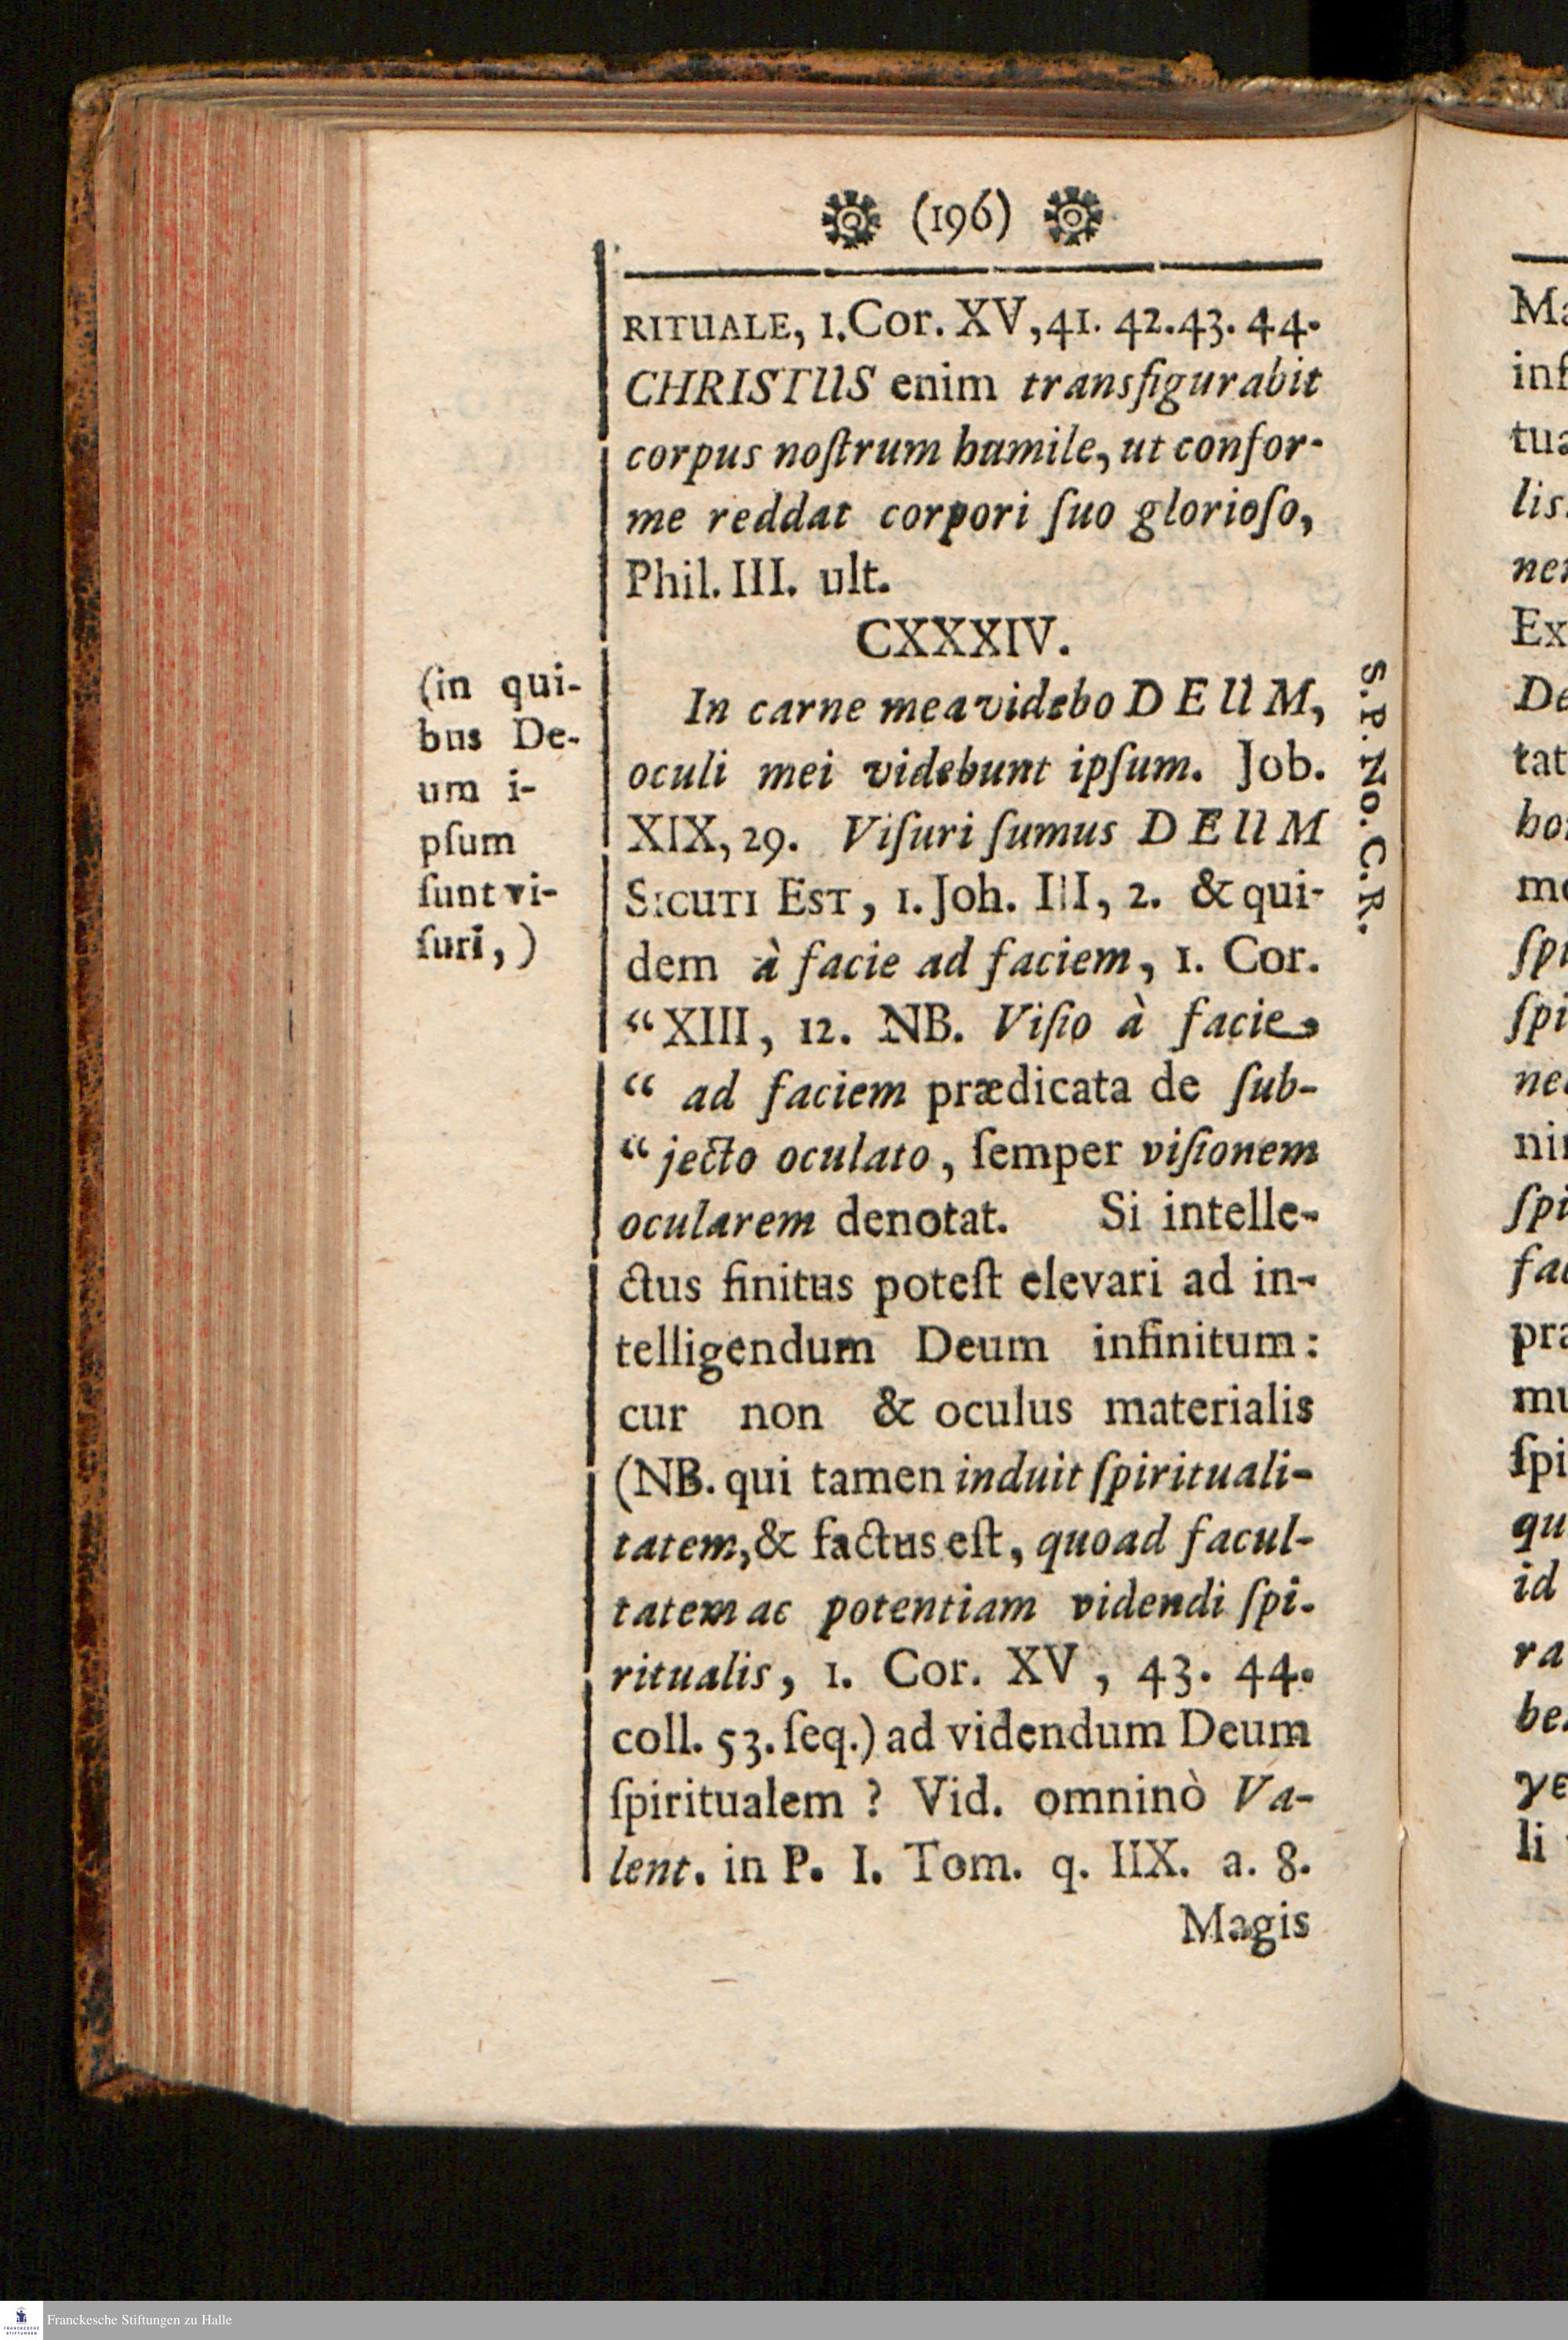 (196)
RITUALE, 1.Cor. XV,41. 42.43. 44.
CHRISTUS enim transfigurabit
corpus noſtrum humile, ut confor-
me reddat corpori ſuo glorioſo,
Phil. III. ult.
CXXXIV.
In carne mea videbo DEUM,
oculi mei videbunt ipſum. Job.
XIX, 29. Viſuri ſumus DEUM
SICUTI EST, 1. Joh. III, 2. & qui-
dem à facie ad faciem, 1. Cor.
“XIII, 12. NB. Viſio à facie
“ ad faciem prædicata de ſub-
“ jecto oculato, ſemper viſionem
ocularem denotat. Si intelle-
ctus finitus poteſt elevari ad in-
telligendum Deum infinitum:
cur non & oculus materialis
(NB. qui tamen induit ſpirituali-
tatem, & factus eſt, quoad facul-
tatem ac potentiam videndi ſpi-
ritualis, 1. Cor. XV, 43. 44.
coll. 53. ſeq.) ad videndum Deum
ſpiritualem ? Vid. omninò Va-
lent. in P. I. Tom. q. IIX. a. 8.
Magis
(in qui-
bus De-
um i-
pſum
ſunt vi-
ſuri,)
S. P. No. C. R.
Ma
inf
tua
lis.
ner
Ex
De
tat
ho
mo
ſpi
ſpi
ne
nir
ſpi
fac
pra
mu
ſpi
qu
id
ra
be
γε
li
Franckesche Stiftungen zu Halle
FRANCKESCHE
STIFTUNGEN